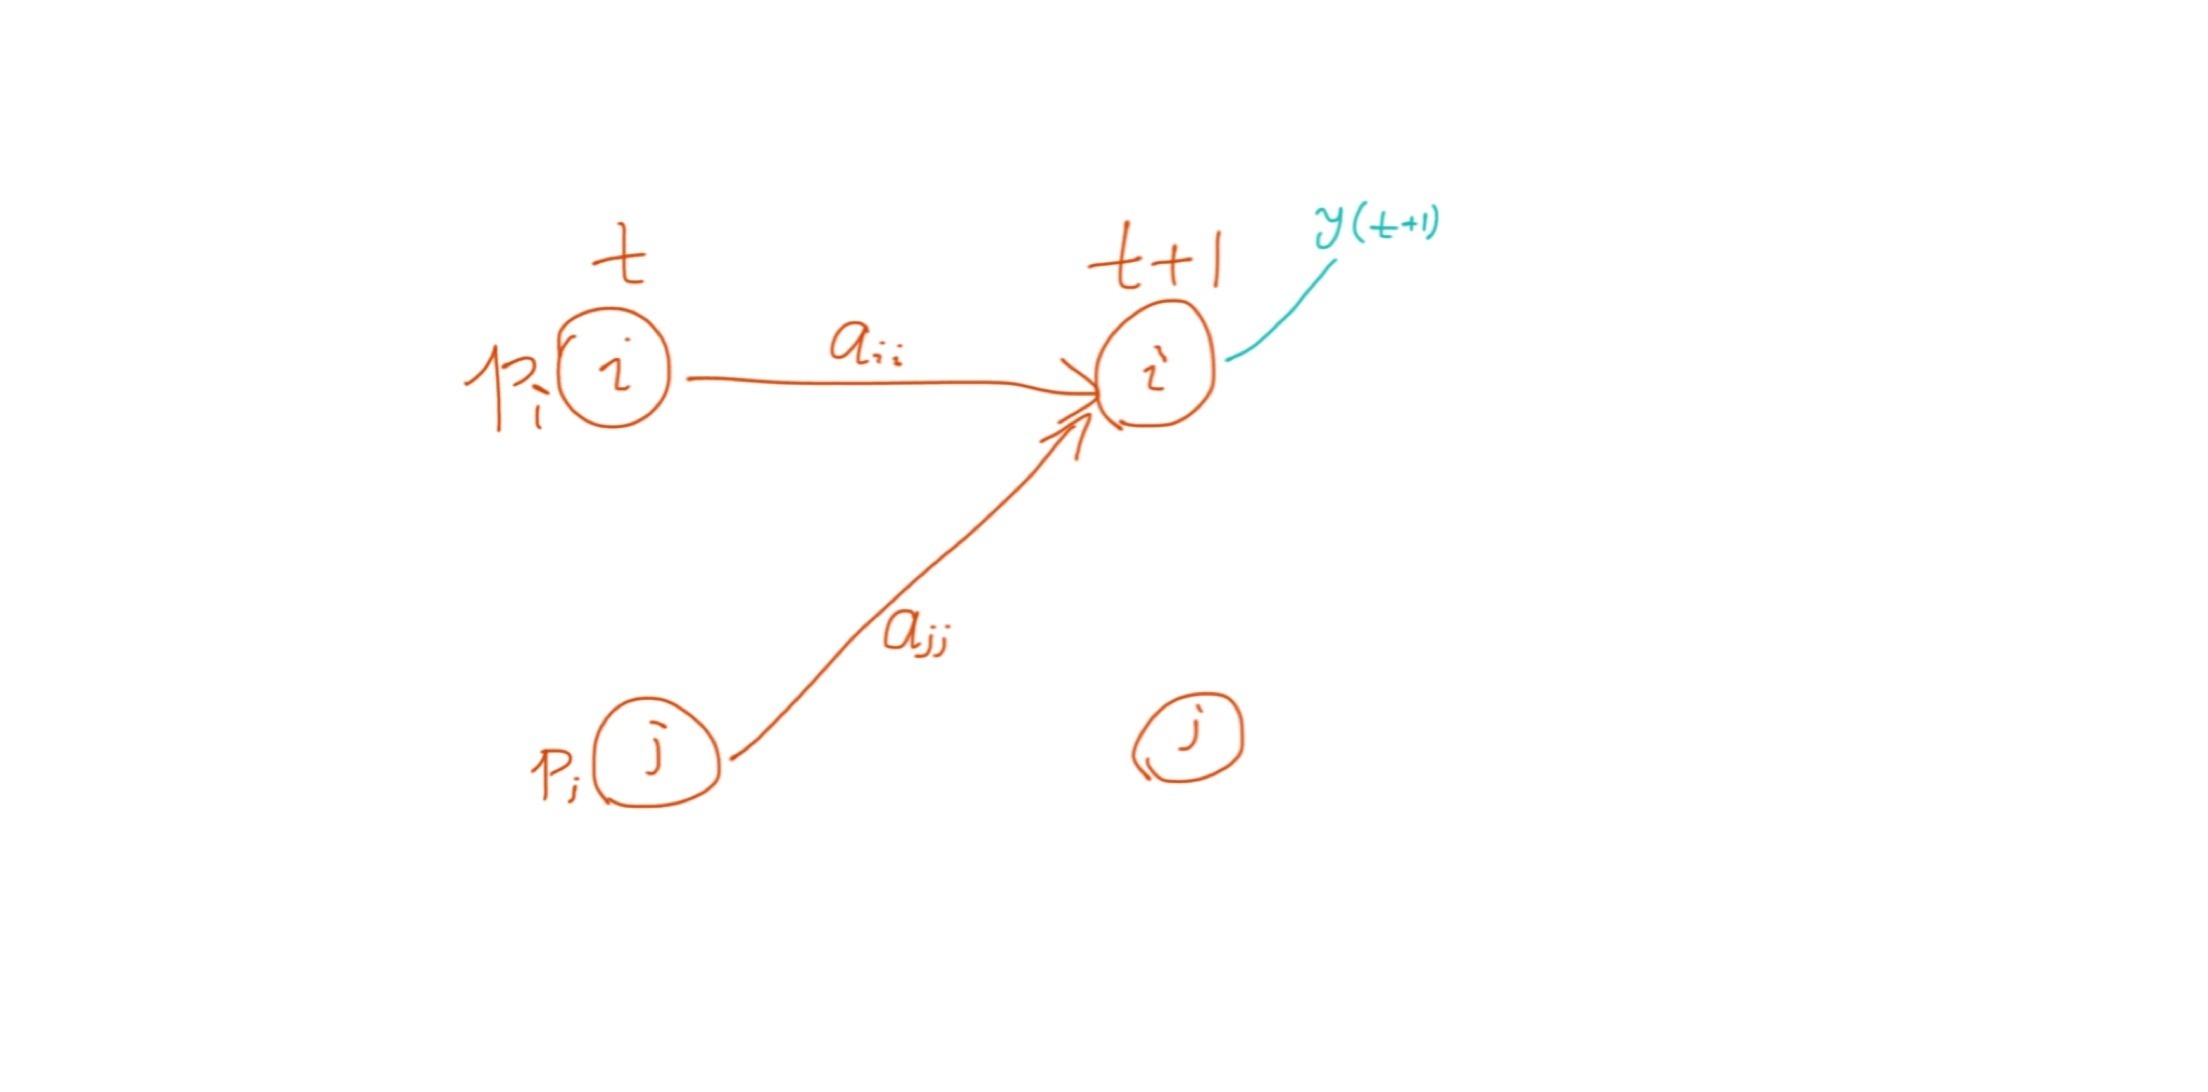 t t+1 y(t+1)
p_i i a_ii i
a_jj
p_j j j